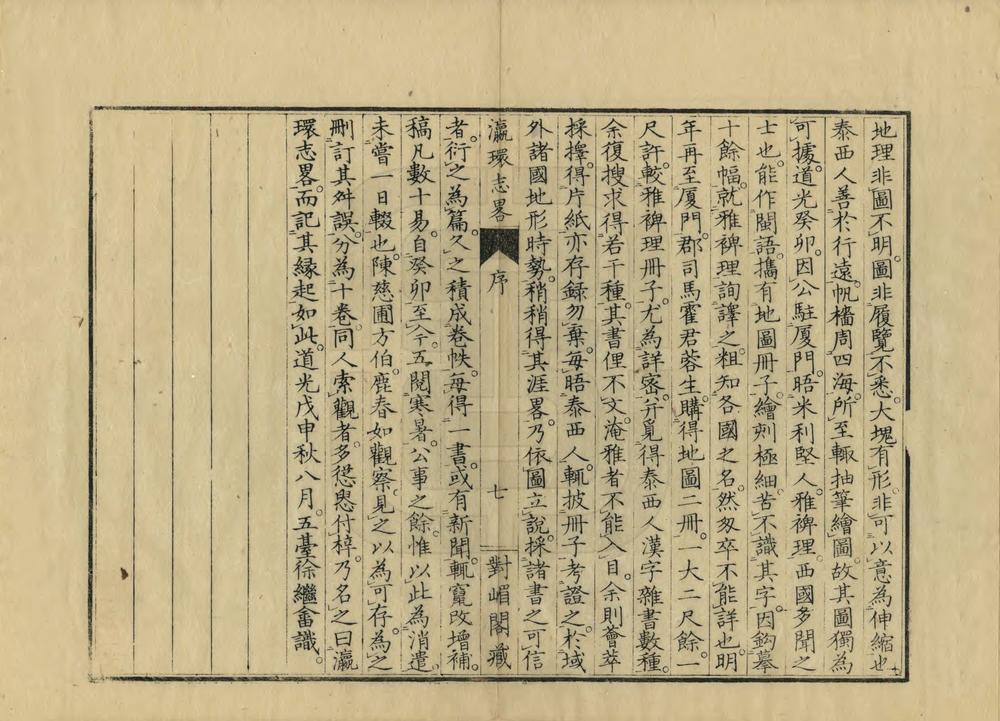 地理非圖不明圖非履覽不悉大塊有形非可以意為伸縮也
泰西人善於行遠帆檣周四海所至輒抽筆繪圖故其圖獨為
可據道光癸卯因公駐厦門晤米利堅人雅裨理西國多聞之
士也能作閩語攜有地圖冊子繪刻極細苦不識其字因鉤摹
十餘幅就雅裨理詢譯之粗知各國之名然匆卒不能詳也明
年再至厦門郡司馬霍君蓉生購得地圖二冊一大二尺餘一
尺許較雅裨理冊子尤為詳密并覓得泰西人漢字雜書數種
余復搜求得若干種其書俚不文淹雅者不能入目余則薈萃
採擇得片紙亦存錄勿棄每晤泰西人輒披冊子考證之於域
外諸國地形時勢稍稍得其涯畧乃依圖立說採諸書之可信
瀛環志畧 序 七 對嵋閣藏
者衍之為篇久之積成卷帙每得一書或有新聞輒竄改增補
稿凡數十易自癸卯至今五閱寒暑公事之餘惟以此為消遣
未嘗一日輟也陳慈圃方伯鹿春如觀察見之以為可存為之
刪訂其舛誤分為十卷同人索觀者多慫恿付梓乃名之曰瀛
環志畧而記其緣起如此道光戊申秋八月五臺徐繼畬識